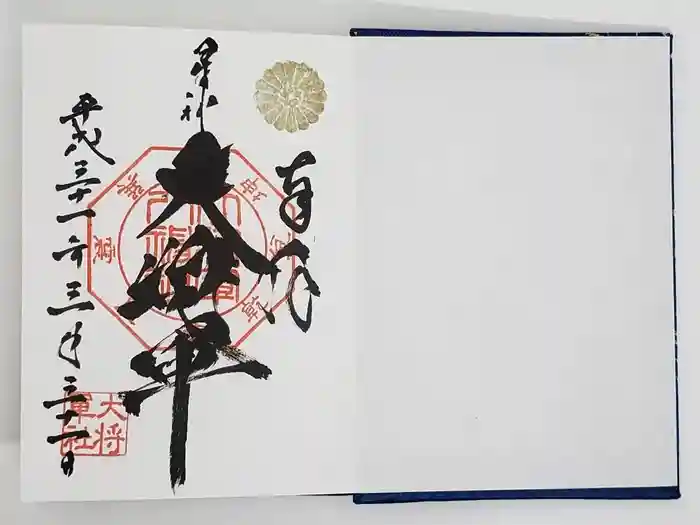 奉拝
星神
大将軍
平成三十一年三月三十一日
大将
軍社